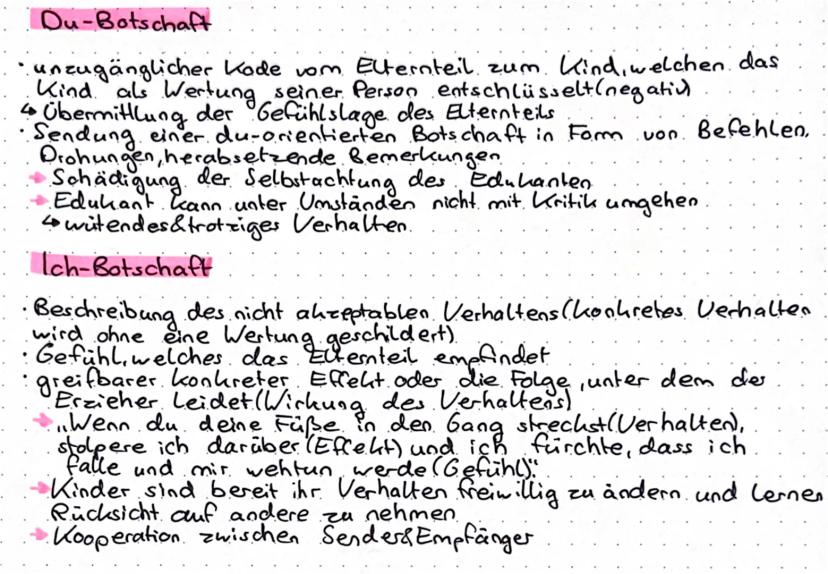 Du-Botschaft
· unzugänglicher Kode vom Elternteil zum Kind, welchen das
Kind als Wertung seiner Person entschlüsselt (negativ)
↳ Übermittlung der Gefühlslage des Elternteils
· Sendung einer du-orientierten Botschaft in Form von Befehlen,
Drohungen, herabsetzende Bemerkungen
→ Schädigung der Selbstachtung des Edukanten
→ Edukant kann unter Umständen nicht mit Kritik umgehen
↳ wütendes & trotziges Verhalten
Ich-Botschaft
· Beschreibung des nicht akzeptablen Verhaltens (konkretes Verhalten
wird ohne eine Wertung geschildert)
· Gefühl, welches das Elternteil empfindet
· greifbarer konkreter Effekt oder die Folge, unter dem der
Erzieher leidet (Wirkung des Verhaltens)
→ „Wenn du deine Füße in den Gang streckst (Verhalten),
stolpere ich darüber (Effekt) und ich fürchte, dass ich
falle und mir wehtun werde (Gefühl)."
→ Kinder sind bereit ihr Verhalten freiwillig zu ändern und lernen
Rücksicht auf andere zu nehmen
→ Kooperation zwischen Sender & Empfänger